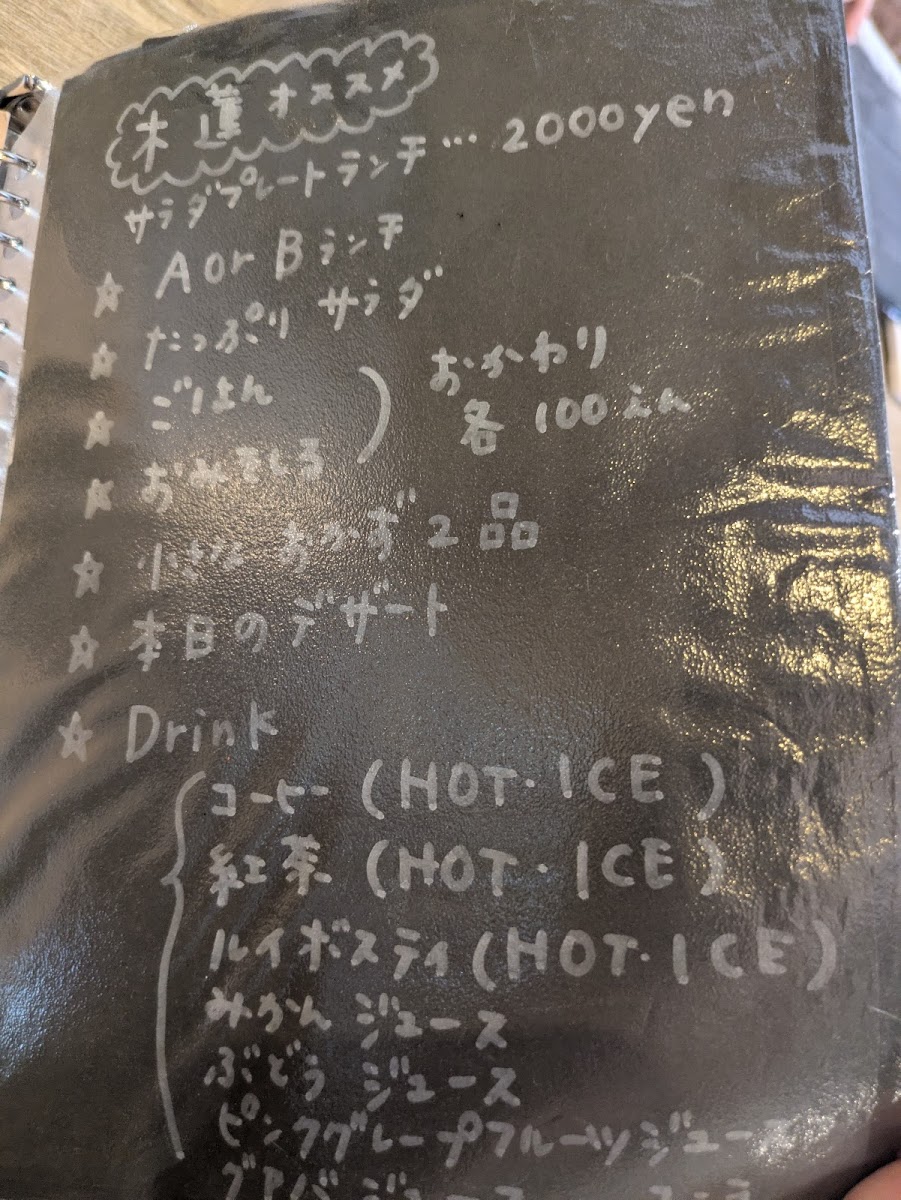 木蓮オススメ
サラダプレートランチ… 2000yen
☆ A or Bランチ
☆ たっぷり サラダ
☆ ごはん
☆ おみそしる
) おかわり
各 100えん
☆ 小さな おかず 2品
☆ 本日のデザート
☆ Drink
コーヒー (HOT・ICE)
紅茶 (HOT・ICE)
ルイボスティ (HOT・ICE)
みかん ジュース
ぶどう ジュース
ピンクグレープフルーツジュース
グアバ ジュース